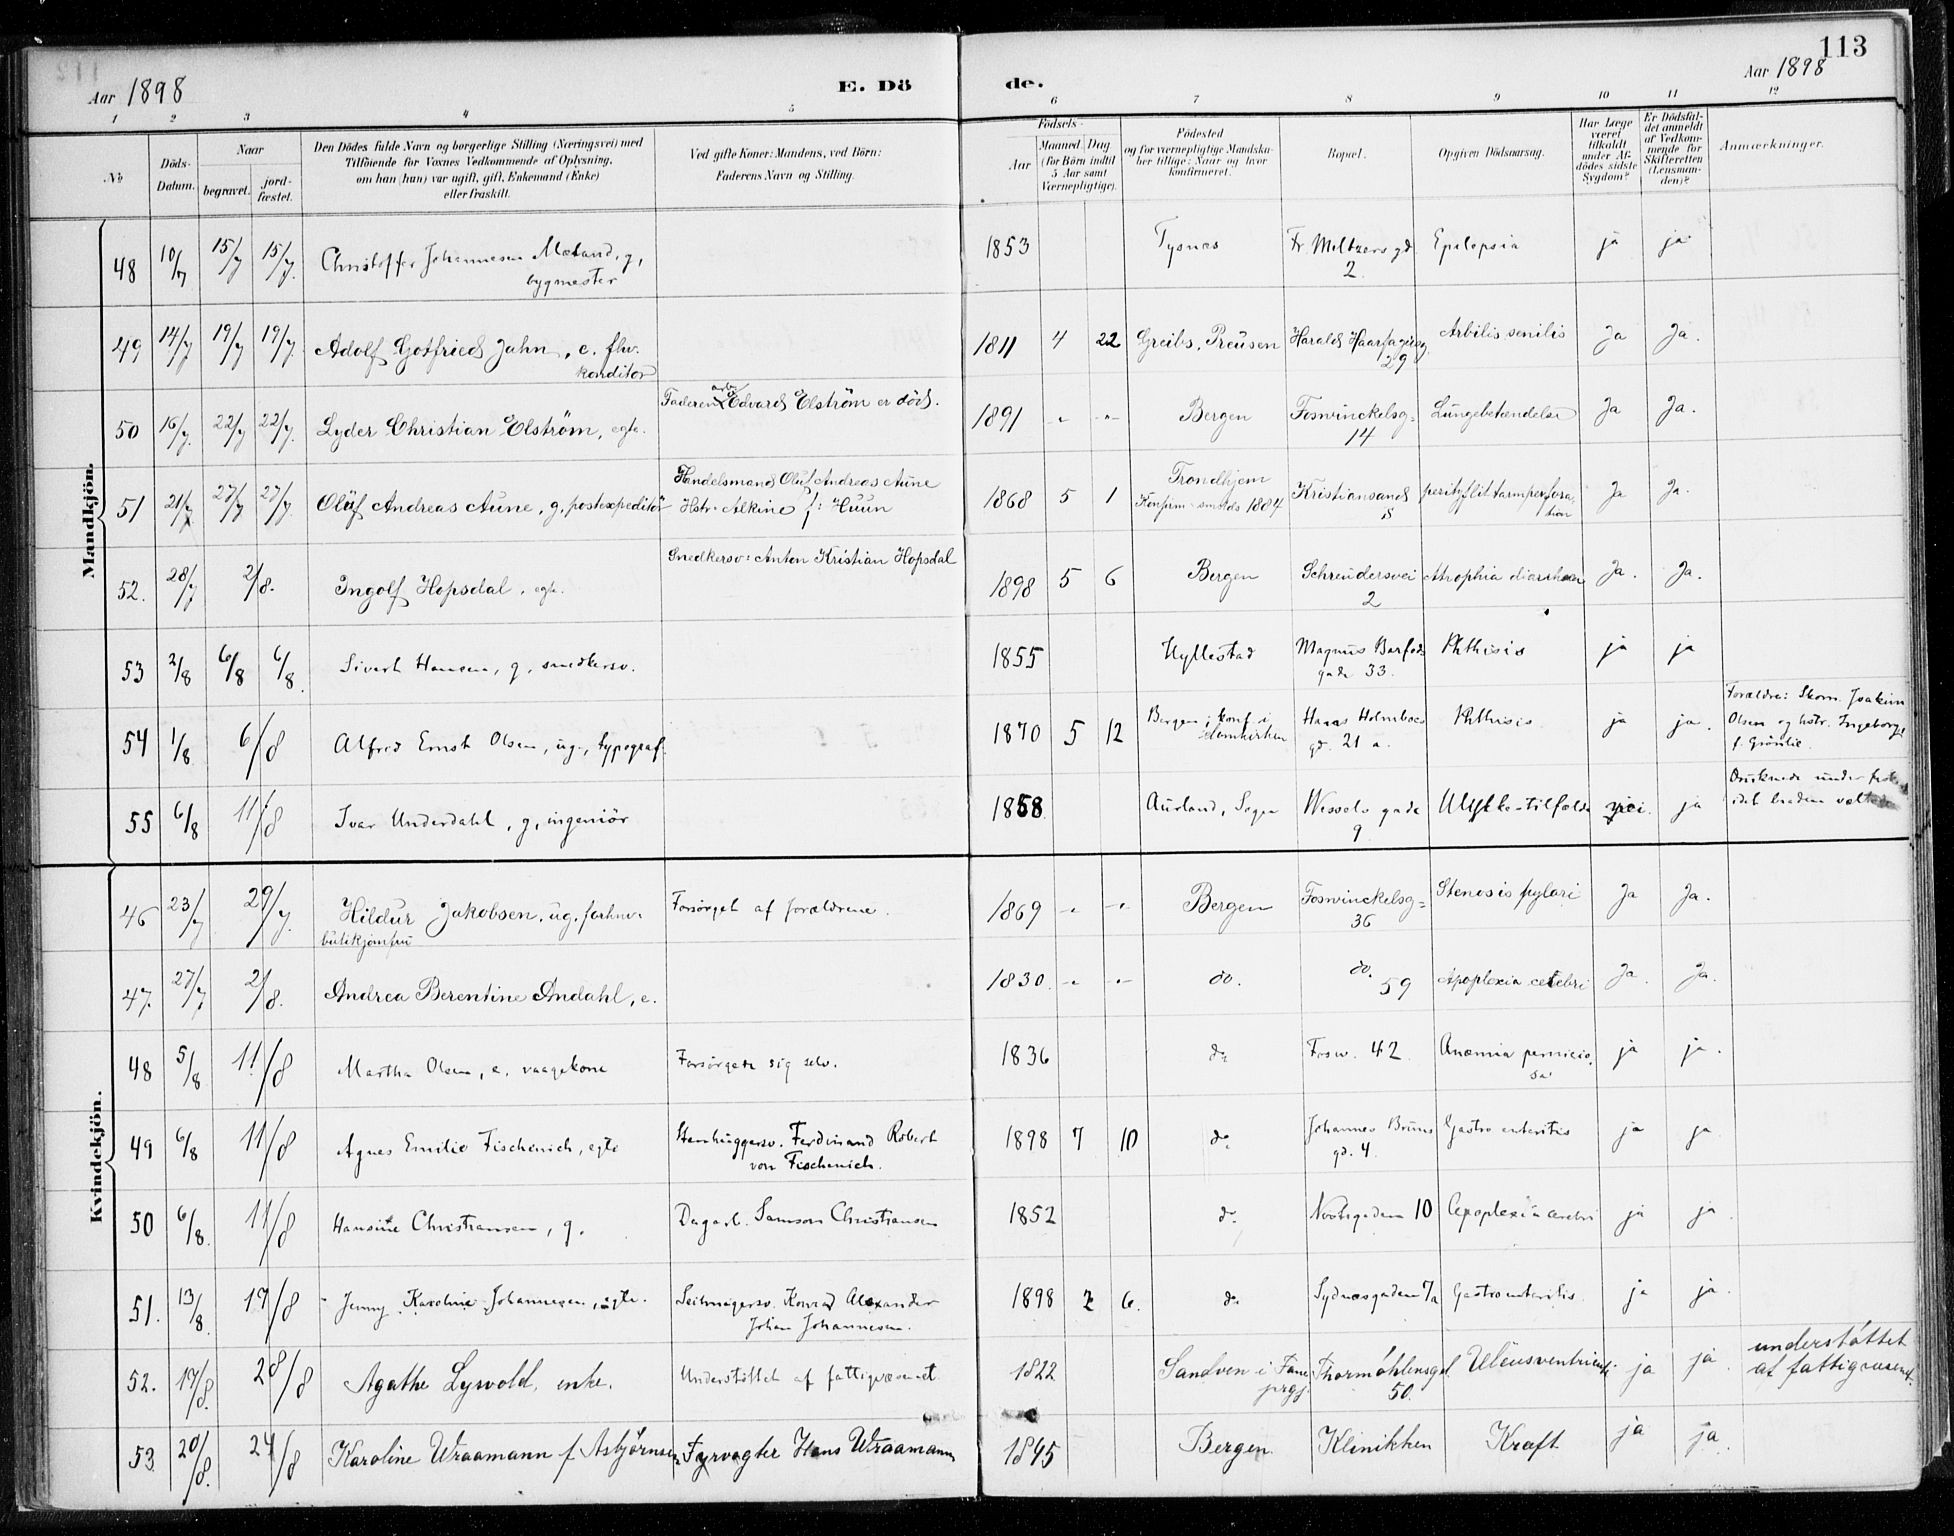 113
Aar 1898
E. Dö de.
Aar 1898
1 2 3 4 5 6 7 8 9 10 11 12
№
Döds-
Datum.
Naar
begravet.
jord-
fæstet.
Den Dödes fulde Navn og borgerlige Stilling (Næringsvei) med
Tilföiende for Voxnes Vedkommende af Oplysning,
om han (hun) var ugift, gift, Enkemand (Enke)
eller fraskilt.
Ved gifte Koner: Mandens, ved Börn:
Faderens Navn og Stilling.
Födsels-
Aar
Maaned Dag
(for Börn indtil
5 Aar samt
Værnepligtige).
Födested
og for værnepligtige Mandska-
ber tillige: Naar og hvor
konfirmeret.
Bopæl.
Opgiven Dödsaarsag.
Har Læge
været
tilkaldt
under Af-
dödes sidste
Sygdom?
Er Dödsfal-
det anmeldt
af Vedkom-
mende for
Skifteretten
(Lensman-
den)?
Anmærkninger.
Mandkjön.
48 10/7 15/7 15/7 Christoffer Johannesen Mæland, g, 1853 Tysnes Fr. Meltzers gd Epilepsia ja ja
bygmester 2.
49 14/7 19/7 19/7 Adolf Gotfried Jahn, e. fhv. 1811 4 22 Greibs, Preusen Harald Haarfagersg. senilis Ja Ja.
konditor 29
50 16/7 22/7 22/7 Lyder Christian Elström, egte. Faderen arb. Edvard Elström er död. 1891 -"- -"- Bergen Fosvinckelsg= Lungebetændelse Ja Ja.
14
51 21/7 27/7 27/7 Oluf Andreas Aune, g, postexpeditör Handelsmand Oluf Andreas Aune 1868 5 1 Trondhjem Kristiansand Ja Ja.
Hstr: Alkine f: Huun Konfirm. smsteds 1884 S
52. 28/7 2/8. Ingolf Hopsdal, egte. Snedkersv: Anton Kristian Hopsdal 1898 5 6 Bergen Schreudersvei Atrophia diarrhoea Ja. Ja.
2
53 2/8 6/8 6/8. Sivert Hansen, g, snedkersv. 1855 Hyllestad Magnus Barfods Phthisis ja ja
gade 33.
54 1/8 6/8 Alfred Ernst Olsen, ug., typograf. 1870 5 12 Bergen; konf. i Hans Holmboes Phthisis ja ja. Forældre: Skom. Joakim
domkirken gd. 21 a. Olsen og hstr. Ingeborg
f. Grönlie.
55 6/8 11/8 Ivar Underdahl, g, ingeniör 1858 Aurland, Sogn Wessels gade Ulykkestilfælde nei. ja Druknede under
9 idet baaden
Kvindekjön.
46 23/7 29/7. Hildur Jakobsen, ug. forhnv. Forsörget af forældrene. 1869 -"- -"- Bergen Fosvinckelsg= Stenosis pylori Ja Ja.
butikjomfru 36
47. 27/7 2/8. Andrea Berentine Andahl, e. 1830. -"- -"- do. do. 59 Apoplexia cerebri Ja. Ja.
48 5/8 11/8 Martha Olsen, e. vaagekone Forsörgede sig selv. 1836 do Fosw. 42 Anæmia pernicio- ja ja.
sa
49 6/8 11/8 Agnes Emilie Fischenich, egte Stenhuggersv. Ferdinand Robert 1898 7 10 do Johannes Bruns Gastro enteritis ja ja
von Fischenich. gd. 4.
50 6/8. 11/8 Hansine Christiansen, g. Dagarb. Samson Christiansen 1852 do. Nöstegaden 10 Apoplexia cerebri ja ja.
51. 13/8. 19/8 Jenny Karoline Johannesen, egte. Seilmagersv. Konrad Alexander 1898 2 6. do Sydnesgaden 7a Gastroenteritis. ja ja.
Johan Johannesen.
52. 19/8. 28/8 Agathe Lyrvold, enke. Understöttet af fattigvæsenet. 1822 Sandven i Fane Thormöhlensgd. Ulcus ventriculi ja ja understöttet
prgj. 50. af fattigvæsenet.
53. 20/8. 24/8 Karoline Wraamann f. Asbjörnsen Fyrvogter Hans Wraamann 1845 Bergen Klinikken Kræft ja ja.